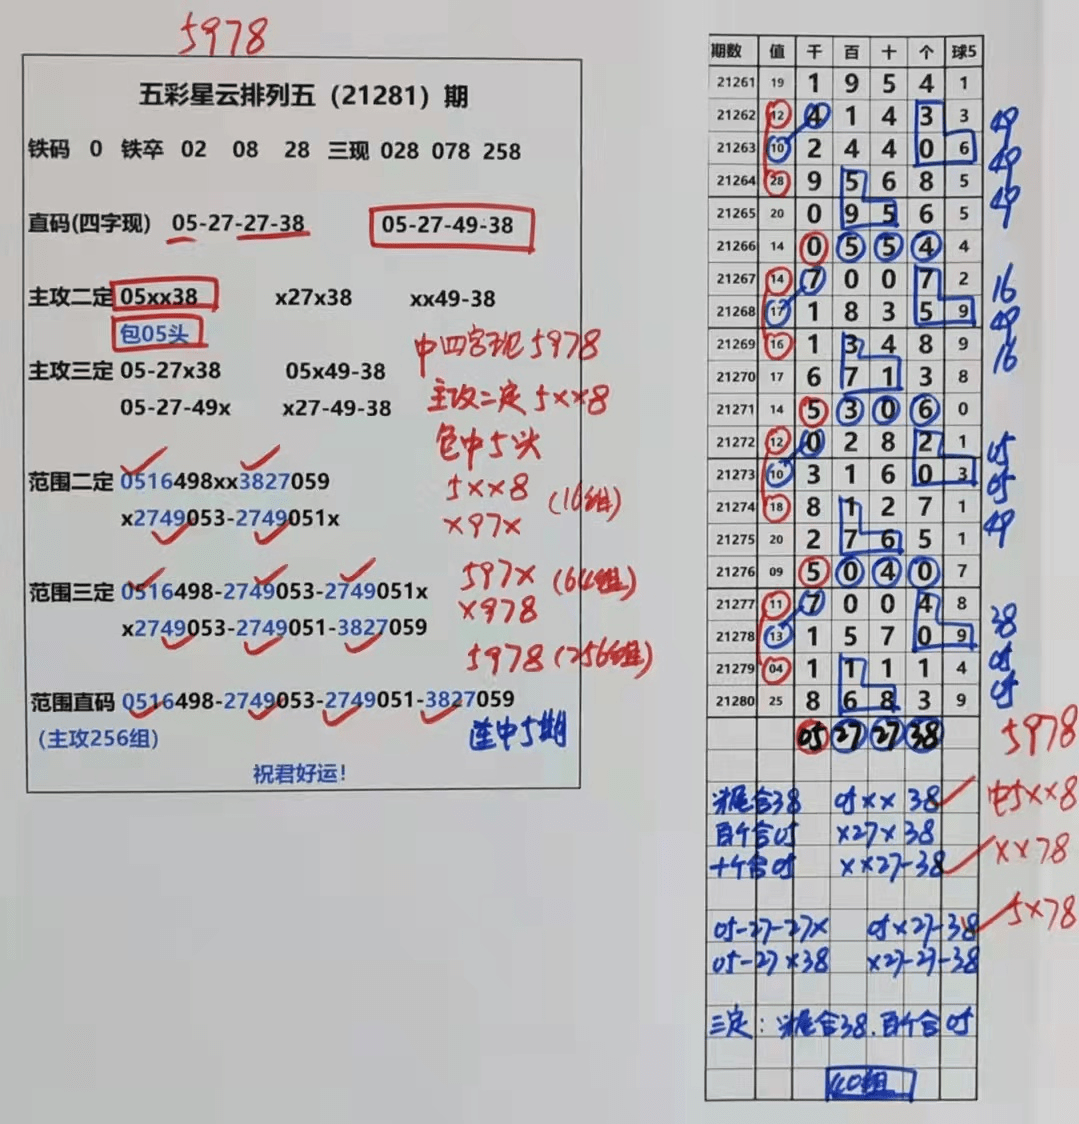 5978
五彩星云排列五（21281）期
铁码 0 铁卒 02 08 28 三现 028 078 258
直码(四字现) 05-27-27-38 05-27-49-38
主攻二定 05xx38 x27x38 xx49-38
包05头
中四字现5978
主攻三定 05-27x38 05x49-38
主攻二定5××8
05-27-49x x27-49-38
包中5头
范围二定 0516498xx3827059
5××8 (16组)
x2749053-2749051x
×97×
范围三定 0516498-2749053-2749051x
597× (64组)
x2749053-2749051-3827059
×978
5978 (256组)
范围直码 0516498-2749053-2749051-3827059
(主攻256组)
连中5期
祝君好运！
期数 值 千 百 十 个 球5
21261 19 1 9 5 4 1
21262 12 4 1 4 3 3 49
21263 10 2 4 4 0 6 49
21264 28 9 5 6 8 5 49
21265 20 0 9 5 6 5
21266 14 0 5 5 4 4
21267 14 7 0 0 7 2 16
21268 17 1 8 3 5 9 49
21269 16 1 3 4 8 9 16
21270 17 6 7 1 3 8
21271 14 5 3 0 6 0
21272 12 0 2 8 2 1 05
21273 10 3 1 6 0 3 05
21274 18 8 1 2 7 1 49
21275 20 2 7 6 5 1
21276 09 5 0 4 0 7
21277 11 7 0 0 4 8 38
21278 13 1 5 7 0 9 05
21279 04 1 1 1 1 4 05
21280 25 8 6 8 3 9
05 27 27 38 5978
尾合38 05×× 38 中5××8
百个合05 ×27×38
十个合05 ××27-38 ××78
05-27-27× 05×27-38 5×78
05-27×38 ×27-27-38
三定: 尾合38.百个合05
40组